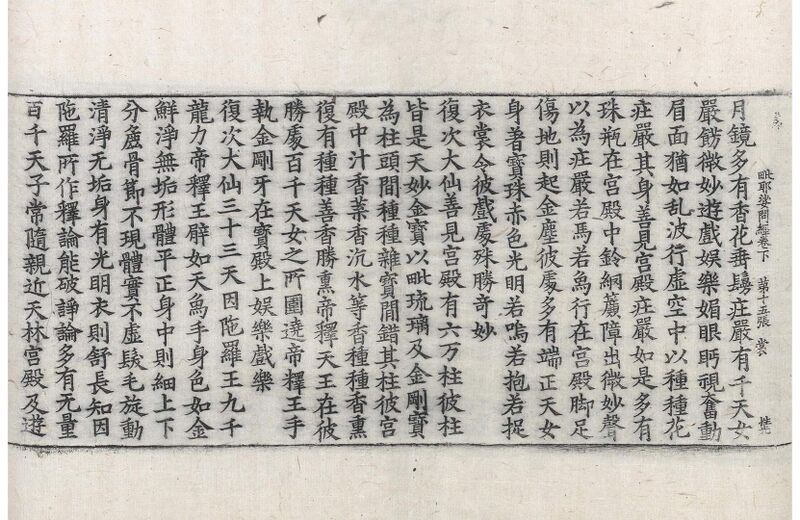 毗耶娑問經卷下 第十五張 裳
月鏡多有香花垂鬘㽵嚴有千天女
嚴餝微妙遊戲娛樂媚眼眄視奮動
眉面猶如乱波行虛空中以種種花
㽵嚴其身善見宮殿㽵嚴如是多有
珠瓶在宮殿中鈴網簾障出微妙聲
以為㽵嚴若馬若魚行在宮殿脚足
傷地則起金塵彼處多有端正天女
身著寶珠赤色光明若嗚若抱若捉
衣裳令彼戲處殊勝奇妙
復次大仙善見宮殿有六万柱彼柱
皆是天妙金寶以毗琉璃及金剛寶
為柱頭間種種雜寶間錯其柱彼宮
殿中汁香葉香沉水等香種種香熏
復有種種善香勝熏帝釋天王在彼
勝處百千天女之所圍遶帝釋王手
執金剛牙在寶殿上娛樂戲樂
復次大仙三十三天因陁羅王九千
龍力帝釋王辟如天鳥手身色如金
鮮淨無垢形體平正身中則細上下
分麁骨節不現體實不虛髮毛旋動
清淨无垢身有光明衣則舒長知因
陁羅所作釋論能破諍論多有无量
百千天子常隨親近天林宮殿及遊